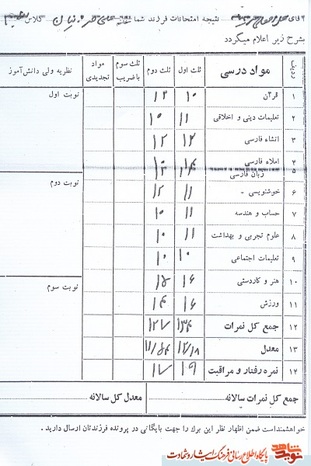 آقای نتیجه امتحانات فرزند شما کلاس
بشرح زیر اعلام میگردد
ردیف مواد درسی ثلث اول ثلث دوم ثلث سوم باضریب مواد تجدیدی نظریه ولی دانش‌آموز
۱ قرآن ۱۰ ۱۲ نوبت اول
۲ تعلیمات دینی و اخلاقی ۱۱ ۱۰
۳ انشاء فارسی ۱۲ ۱۲
۴ املاء فارسی
۵ زبان فارسی نوبت دوم
۶ خوشنویسی - ۱۱ ۱۲
۷ حساب و هندسه ۱۱ ۱۰
۸ علوم تجربی و بهداشت ۱۱ ۱۰
۹ تعلیمات اجتماعی ۱۰ ۱۰
۱۰ هنر و کاردستی ۱۶ ۱۵ نوبت سوم
۱۱ ورزش ۱۶ ۱۴
۱۲ جمع کل نمرات ۱۳۴ ۱۲۷
۱۳ معدل
۱۴ نمره رفتار و مراقبت ۱۹ ۱۷
جمع کل نمرات سالانه معدل کل سالانه
خواهشمنداست ضمن اظهار نظر این برك را جهت بایگانی در پرونده فرزندتان ارسال دارید .
نوید شاهد
پایگاه اطلاع رسانی فرهنگ ایثار و شهادت